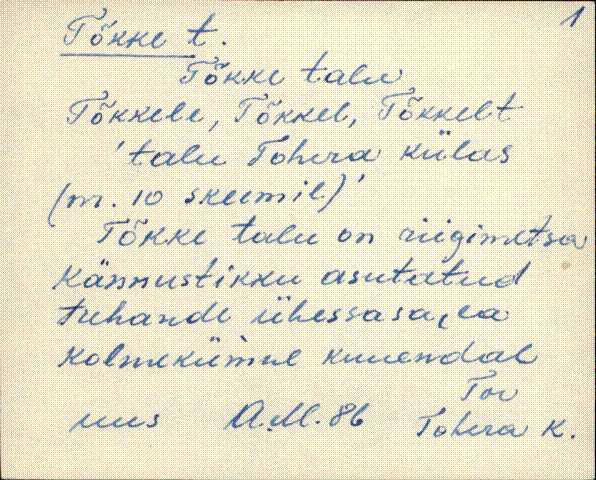 1
Tõkke t.
Tõkke talu
Tõkkele, Tõkkel, Tõkkelt
'talu Tohera külas
(nr. 10 skeemil)'
Tõkke talu on riigimetsa
kännustikku asutatud
tuhande ühessasa, ea
kolmekümne kuuendal
uus A.M. 86 Tor
Tohera k.